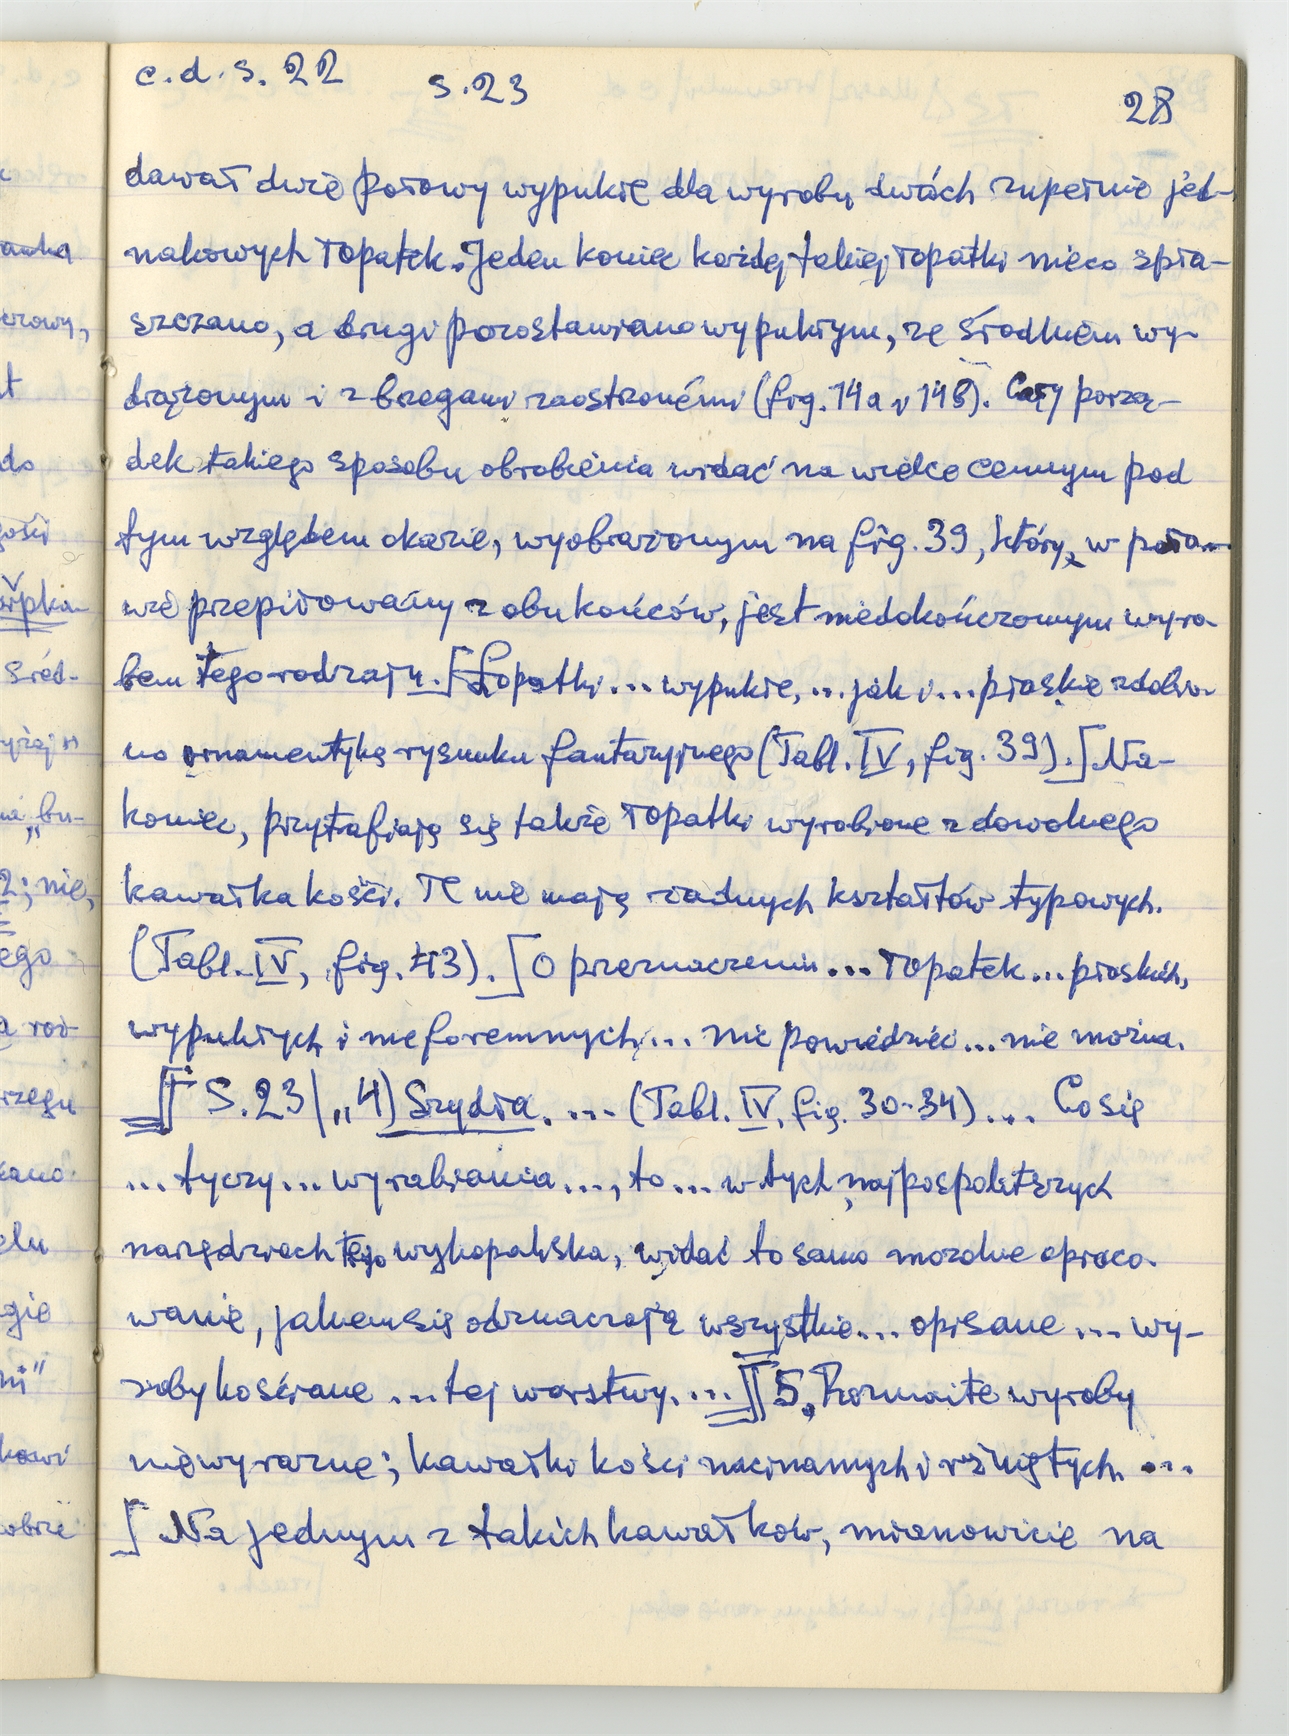 c.d.s. 22 s.23 28
dawał dwie połowy wypukłe dla wyrobu dwóch zupełnie jed-
nakowych łopatek. Jeden koniec każdej takiej łopatki nieco spła-
szczano, a drugi pozostawiano wypukłym, ze środkiem wy-
drążonym i z brzegami zaostrzonemi (fig. 14a i 14b). Cały porzą-
dek takiego sposobu obrobienia widać na wielce cennym pod
tym względem okazie, wyobrażonym na fig. 39, który, w poło-
wie przepiłowany z obu końców, jest niedokończonym wyro-
bem tego rodzaju. [Łopatki ... wypukłe, ... jak i ... płaskie zdobio-
no ornamentyką rysunku fantazyjnego (Tabl. IV, fig. 39).] Na-
koniec, przytrafiają się także łopatki wyrobione z dowolnego
kawałka kości. Te nie mają żadnych kształtów typowych.
(Tabl. IV, fig. 43). [O przeznaczeniu ... łopatek ... płaskich,
wypukłych i nieforemnych ... nic powiedzieć ... nie można.
S. 23 | „4) Szydła. ... (Tabl. IV, fig. 30-34) ... Co się
... tyczy ... wyrabiania ..., to ... w tych najpospolitszych
narzędziach tego wykopaliska, widać to samo mozolne opraco-
wanie, jakiem się odznaczają wszystkie ... opisane ... wy-
roby kościane ... tej warstwy. ...] 5, Rozmaite wyroby
niewyraźne; kawałki kości nacinanych i rżniętych. ...
[Na jednym z takich kawałków, mianowicie na